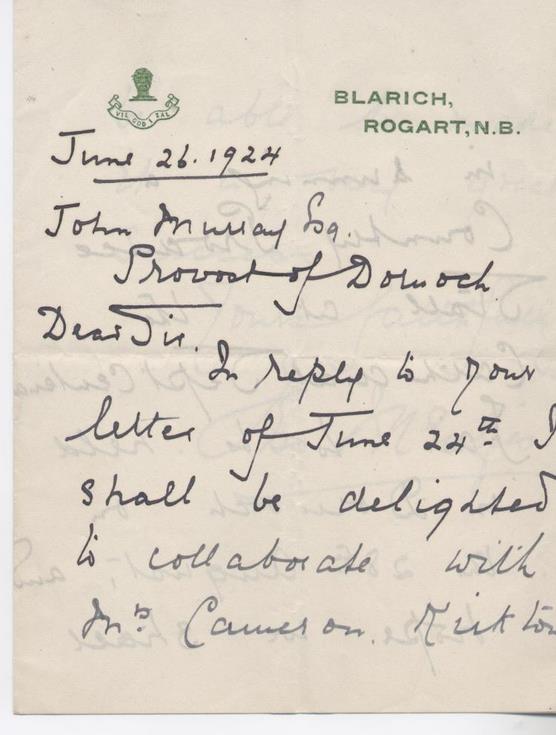 VIL GOD I ZAL
BLARICH,
ROGART, N.B.
June 26. 1924
John Murray Esq.
Provost of Dornoch
Dear Sir.
In reply to your
letter of June 24th I
shall be delighted
to collaborate with
Mrs Cameron. Kirkton